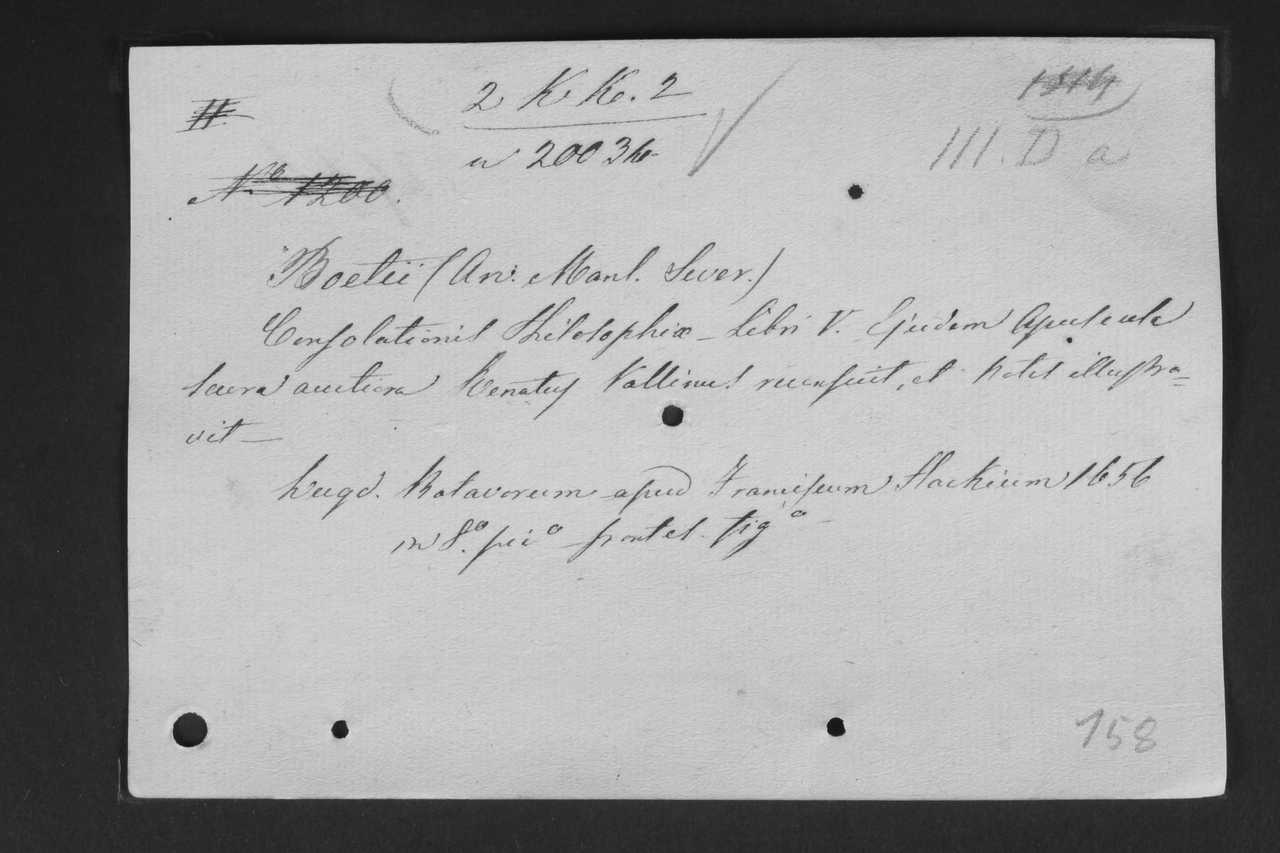 II.
2 K K. 2
1314
n 20036
III. D a
Nro 1200.
Boetii (An. Manl. Sever.)
Consolationis Philosophiæ – Libri V. Ejusdem Opuscula
sacra auctiora Renatus Vallinus recensuit, et Notis illustra=
vit –
Lugd. Batavorum apud Franciscum Hackium 1656
in 8.º pic.º frontes. fig.º
158